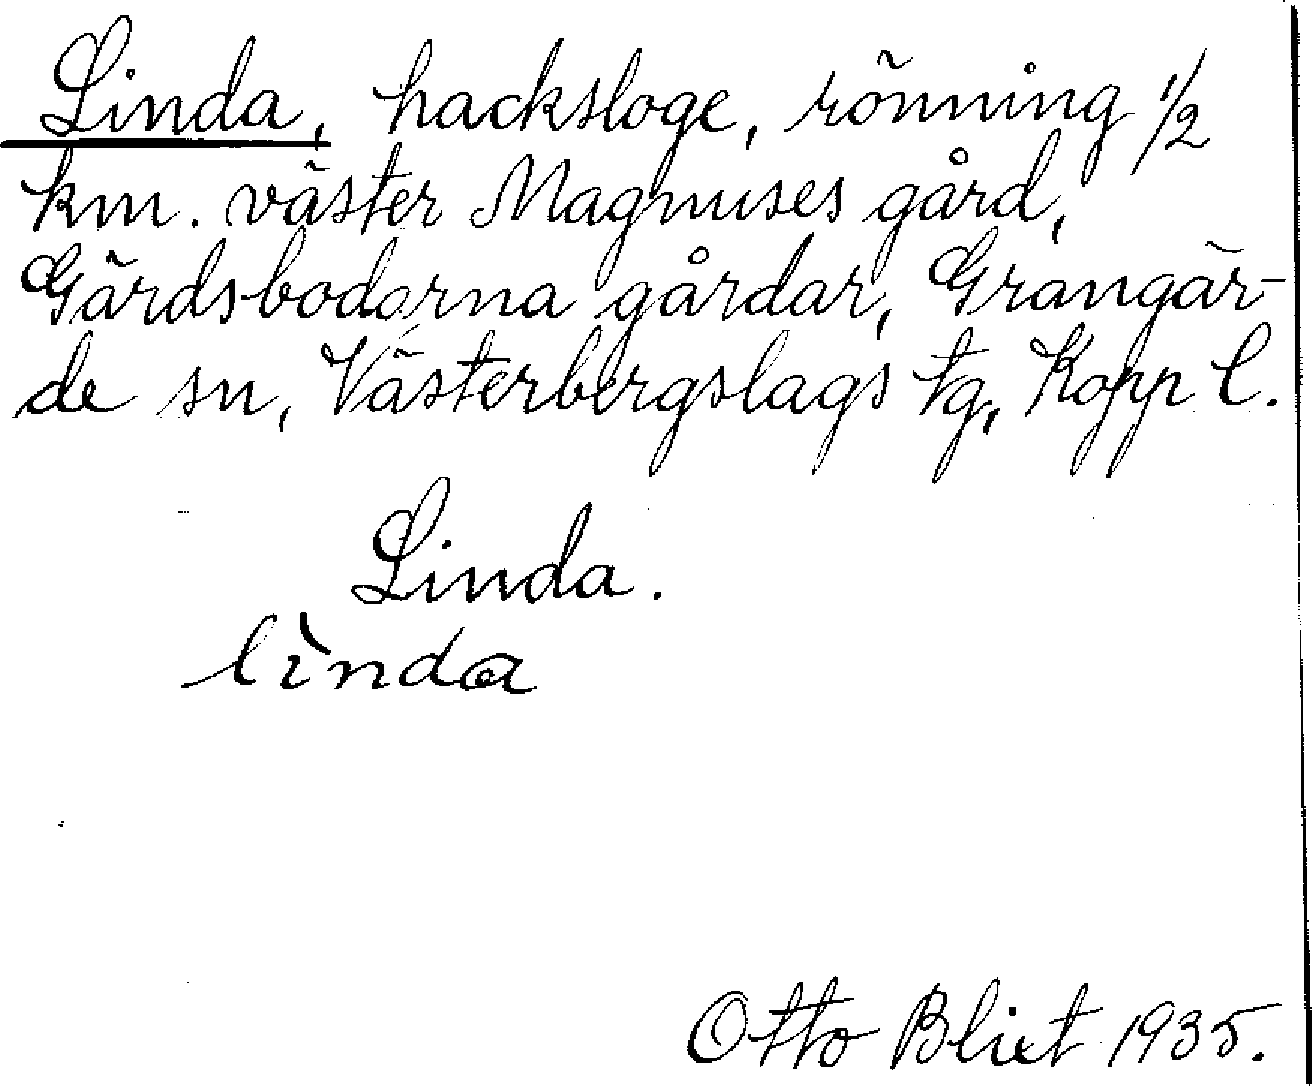 Linda, hacksloge, rönning 1/2
km. väster Magnuses gård,
Gärdsbodarna gårdar, Grangär-
de sn, Västerbergslags tg, Kopp l.
Linda.
lìnda
Otto Blixt 1935.